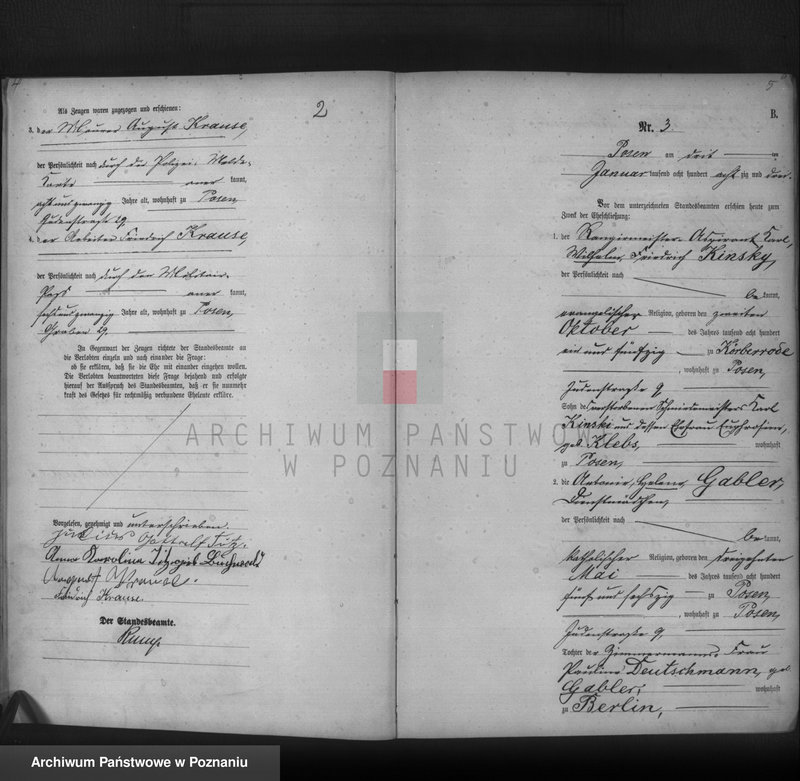 4
Als Zeugen waren zugezogen und erschienen:
2
3. der Maurer August Krause,
der Persönlichkeit nach durch die Polizei-Melde-
Karte aner kannt,
acht und zwanzig Jahre alt, wohnhaft zu Posen
Judenstraße 29.
4. der Arbeiter Friedrich Krause,
der Persönlichkeit nach durch den Militair-
Pass aner kannt,
sechs und zwanzig Jahre alt, wohnhaft zu Posen,
Graben 9.
In Gegenwart der Zeugen richtete der Standesbeamte an
die Verlobten einzeln und nach einander die Frage:
ob sie erklären, daß sie die Ehe mit einander eingehen wollen.
Die Verlobten beantworteten diese Frage bejahend und erfolgte
hierauf der Ausspruch des Standesbeamten, daß er sie nunmehr
kraft des Gesetzes für rechtmäßig verbundene Eheleute erkläre.
Vorgelesen, genehmigt und unterschrieben.
Julius Gottfried
Anna Karolina
August Krause.
Friedrich Krause.
Der Standesbeamte.
Kump
5
B.
Nr. 3.
Posen am drei ten
Januar tausend acht hundert acht zig und drei
Vor dem unterzeichneten Standesbeamten erschien heute zum
Zweck der Eheschließung:
1. der Rangirmeister-Aspirant Karl,
Wilhelm, Friedrich Kinsky,
der Persönlichkeit nach
be kannt,
evangelischer Religion, geboren den zweiten
Oktober des Jahres tausend acht hundert
ein und fünfzig zu Körberrode
, wohnhaft zu Posen,
Judenstraße 9,
Sohn des verstorbenen Schmiedemeisters Karl
Kinski und dessen Ehefrau Euphrosine,
geb. Klebs, wohnhaft
zu Posen,
2. die Antonie, Helene Gabler,
Dienstmädchen,
der Persönlichkeit nach
be kannt,
katholischer Religion, geboren den dreizehnten
Mai des Jahres tausend acht hundert
fünf und sechszig zu Posen,
, wohnhaft zu Posen,
Judenstraße 9,
Tochter der Zimmermanns-Frau
Pauline Deutschmann, geb.
Gabler, wohnhaft
zu Berlin,
ARCHIWUM PAŃSTWO
W POZNANIU
Archiwum Państwowe w Poznaniu